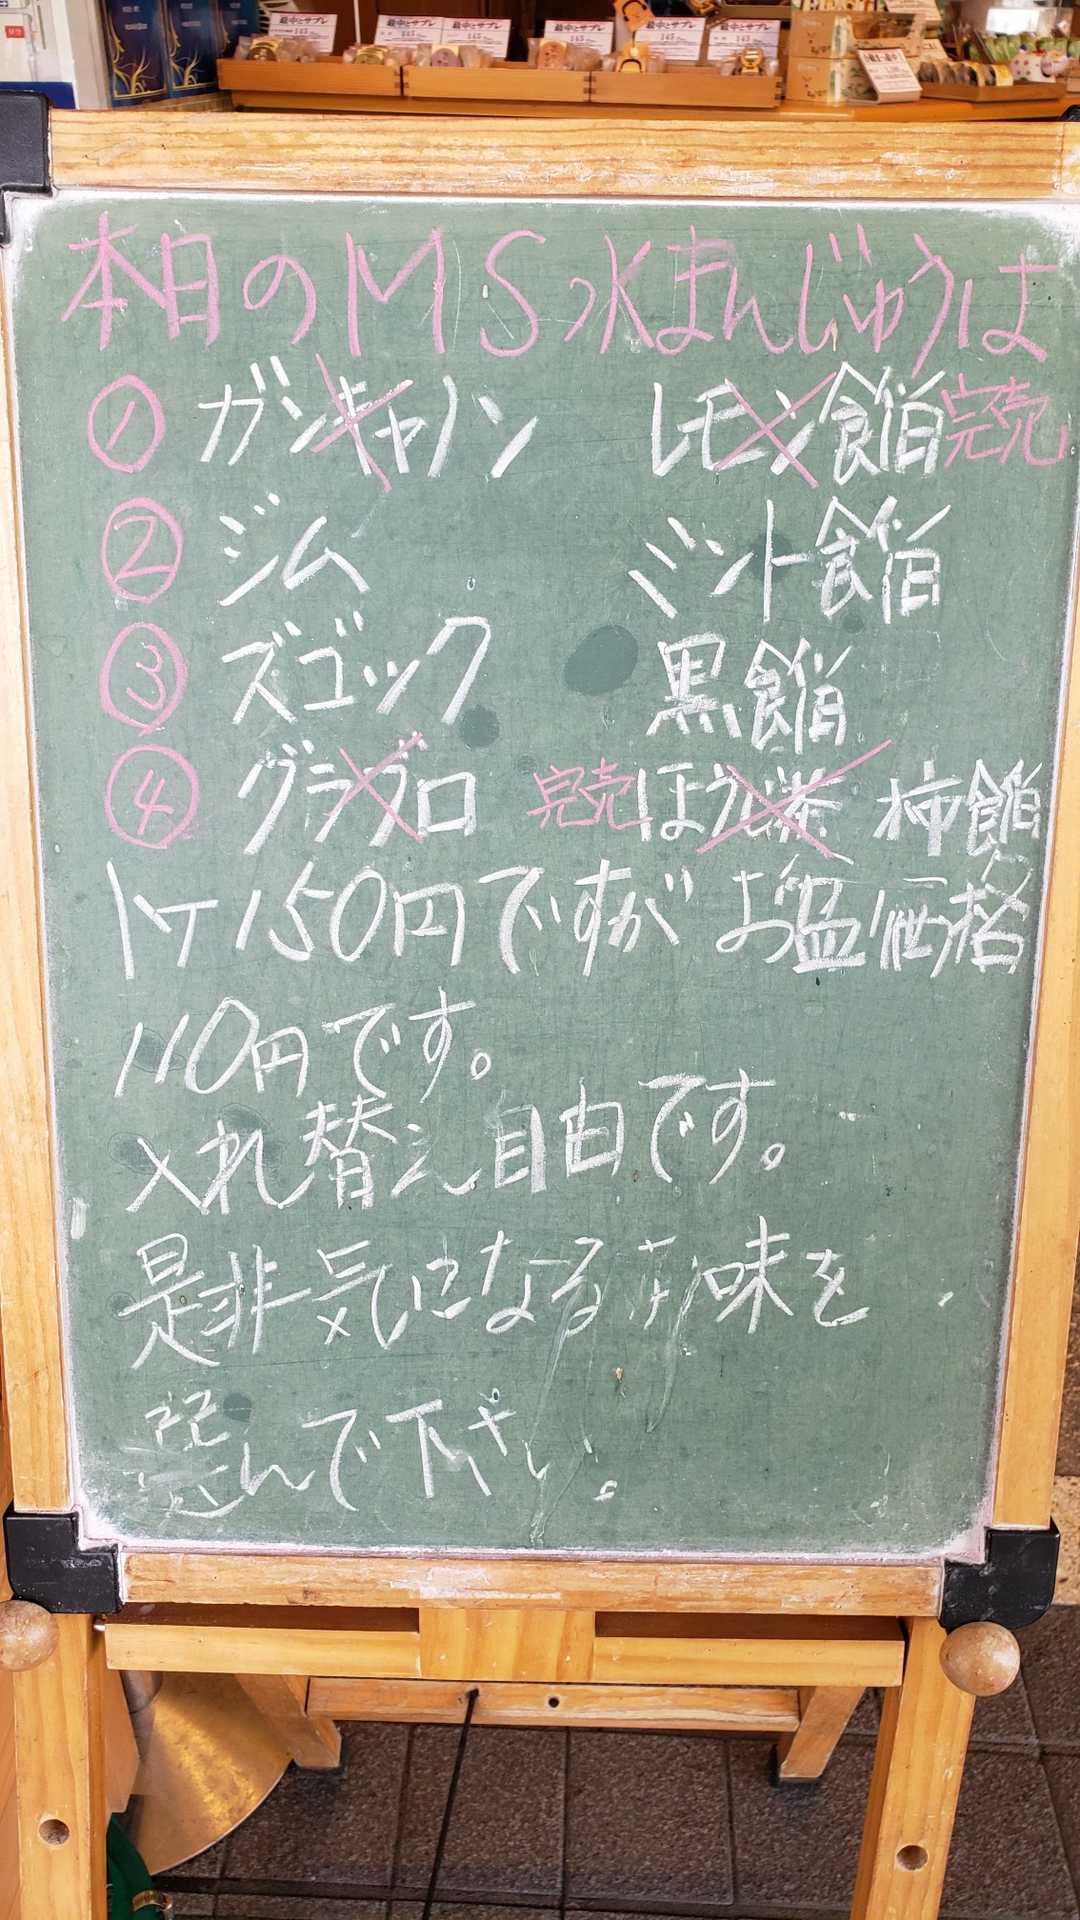 最中とサブレ 最中とサブレ 最中とサブレ 最中とサブレ 最中とサブレ
145 145 145 145 145
本日のMS水まんじゅうは
① ガンキャノン レモン餡 完売
② ジム ミント餡
③ ズゴック 黒餡
④ グラブロ 完売 ほうじ茶 柿餡
1ケ150円ですが お盆価格
110円です。
入れ替え自由です。
是非気になるお味を
選んで下さい。